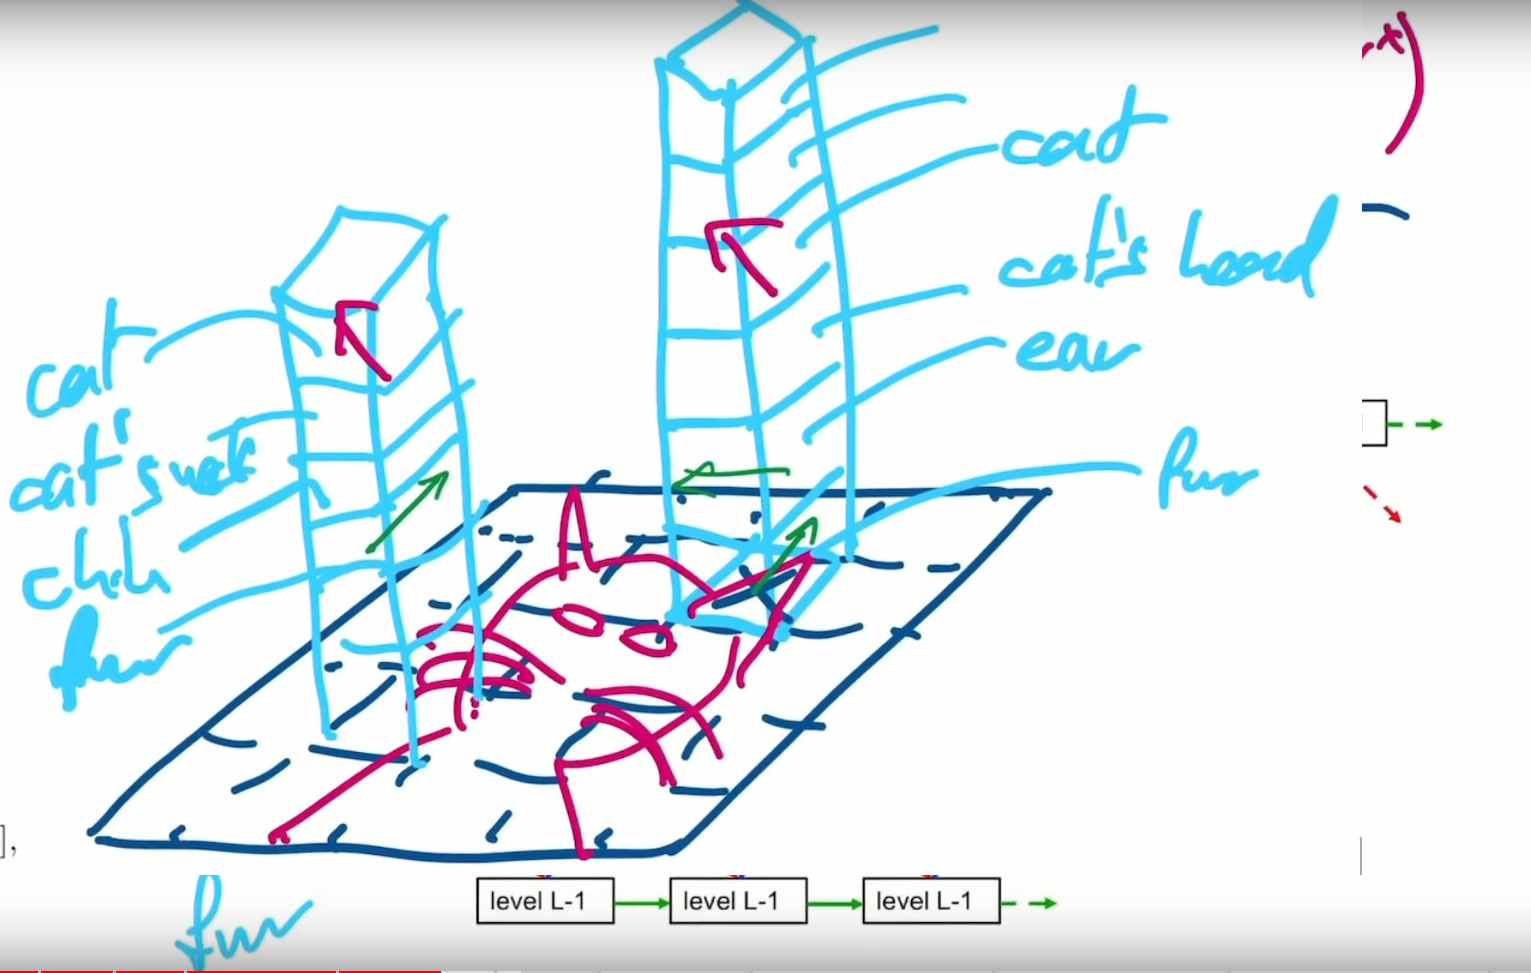 cat
cat's head
ear
fur
cat
cat's neck
chin
fur
],
fur
level L-1
level L-1
level L-1